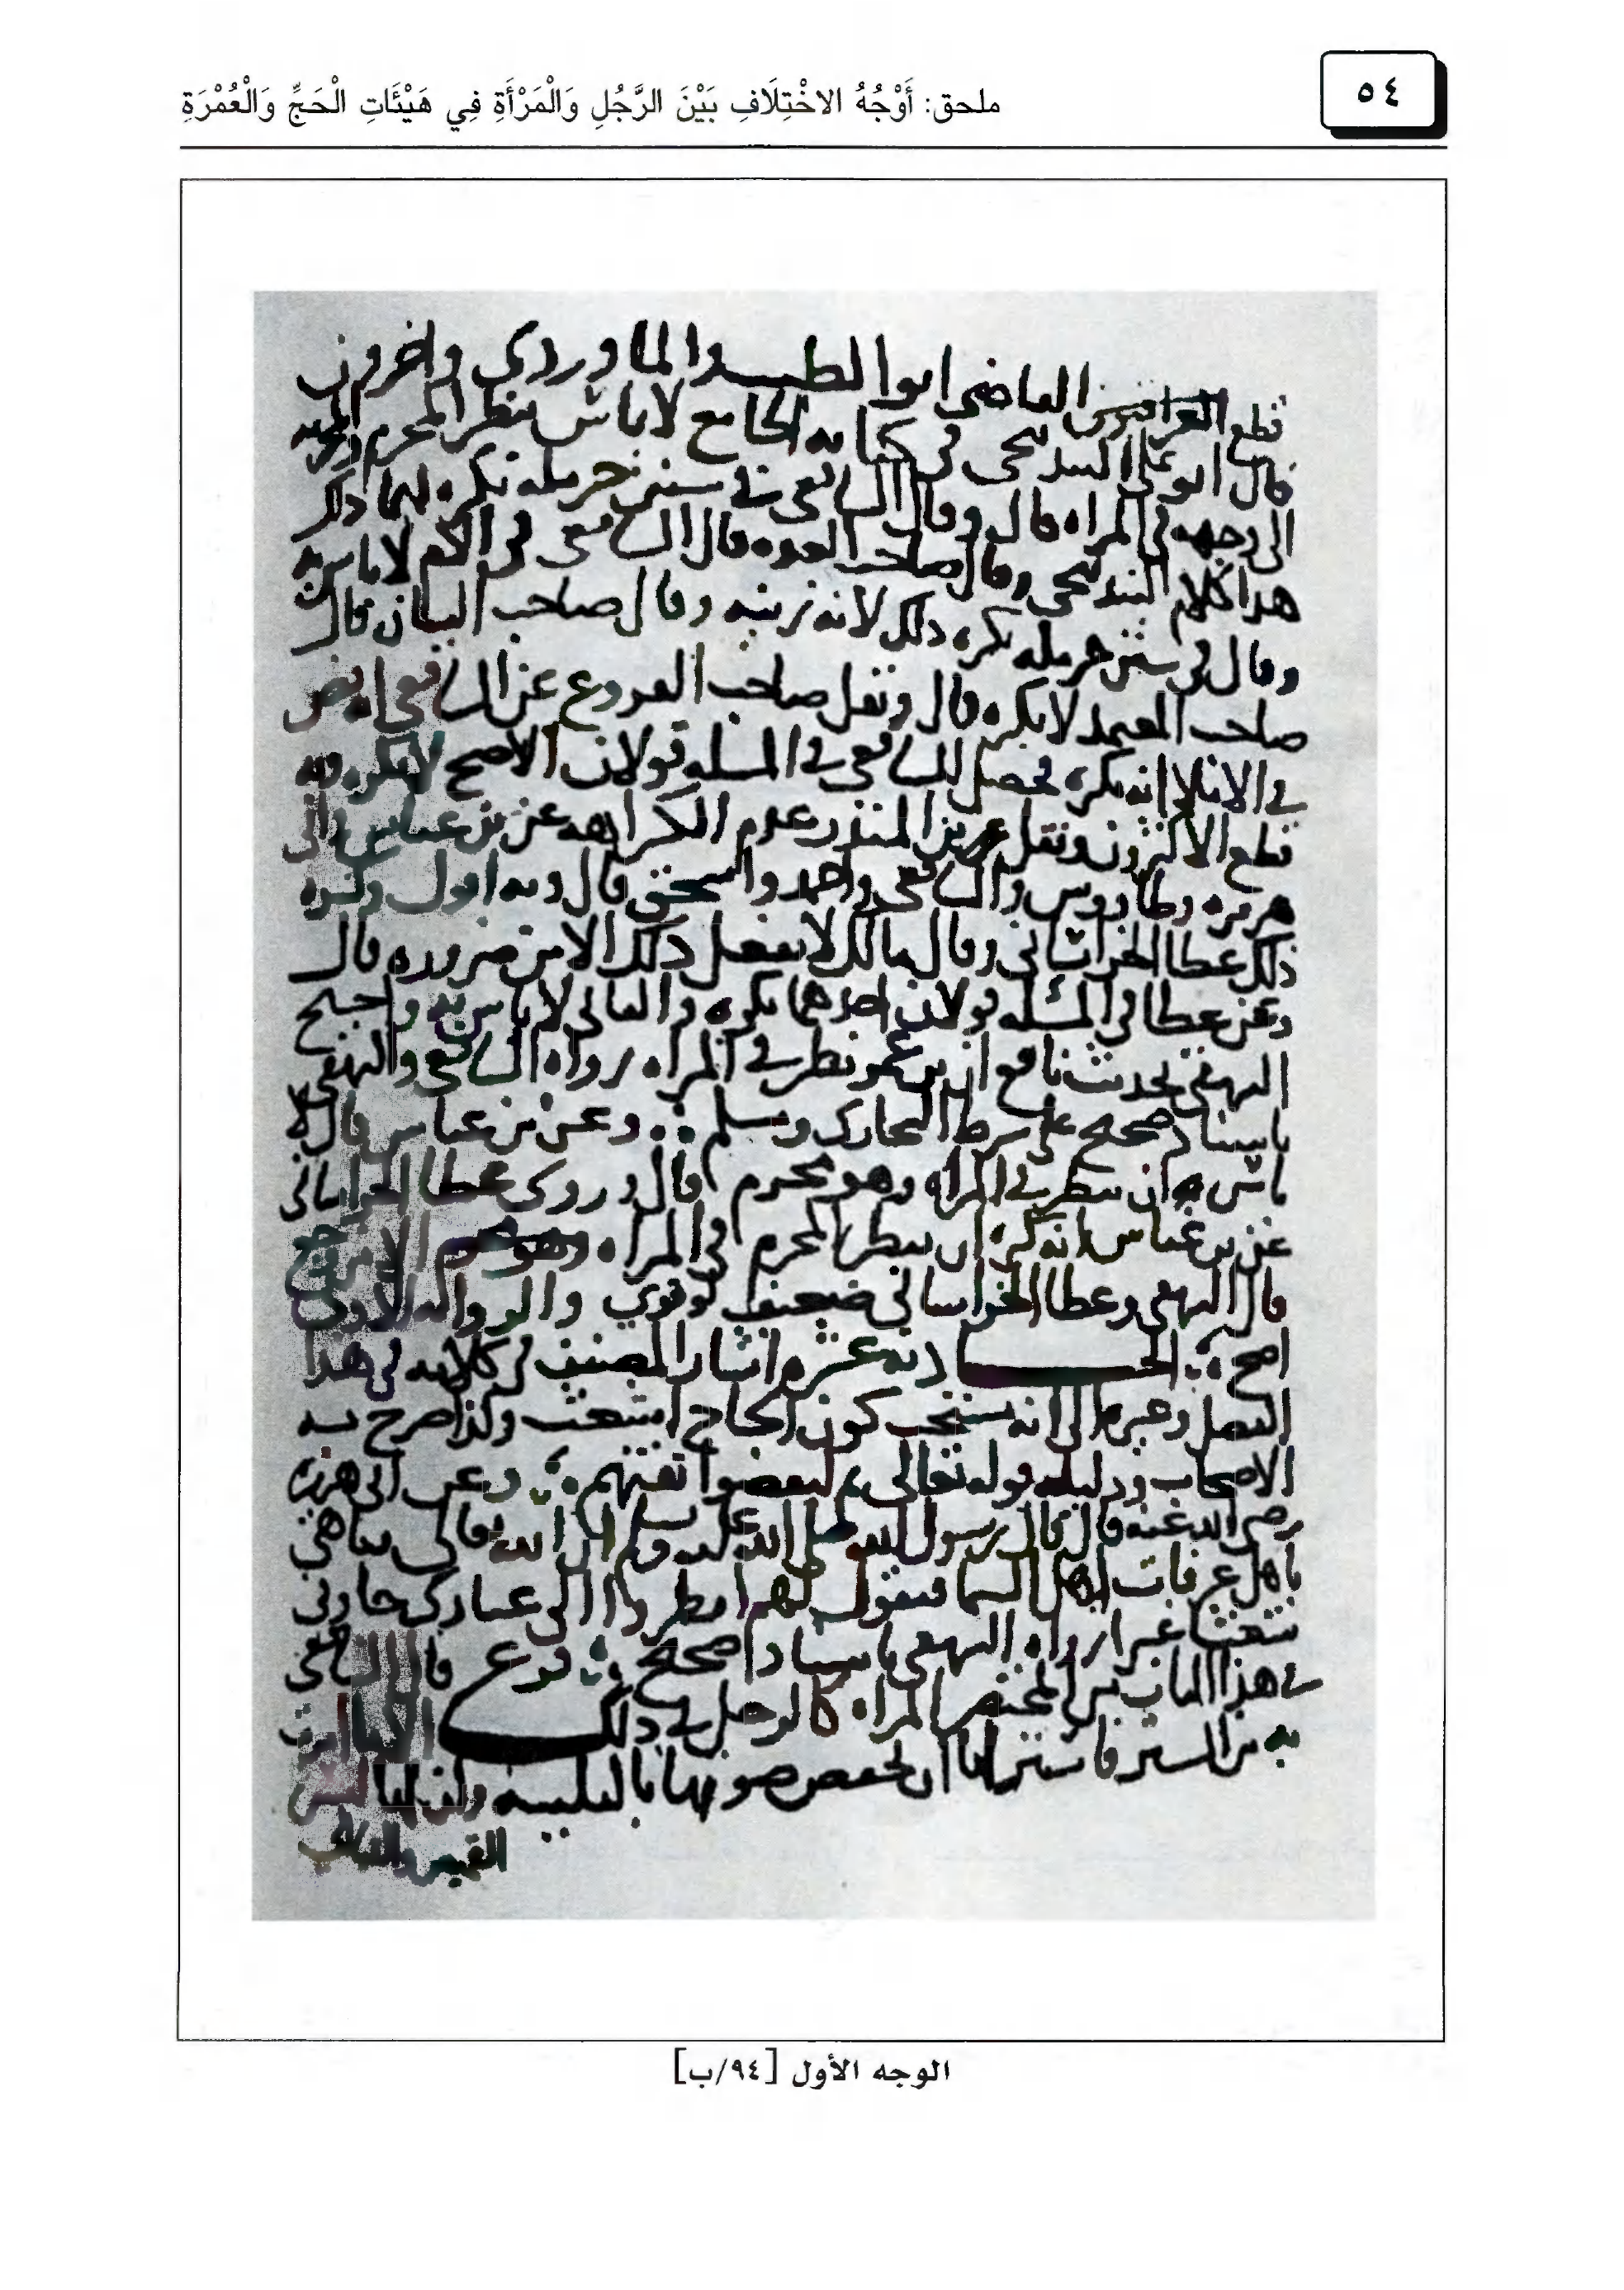 ٥٤
ملحق: أَوْجُهُ الاخْتِلَافِ بَيْنَ الرَّجُلِ وَالْمَرْأَةِ فِي هَيْئَاتِ الْحَجِّ وَالْعُمْرَةِ
قطع القاضي ابوا الطيب والماوردي واخرون
قال ابو علي البندنيجي في كتابه الجامع لا باس بنظر المحرم والمحرمه
الى وجهه في المراه قال وقال الشافعي في سنن حرمله يكره لهما ذلك
هذا كلام البندنيجي وقال صاحب العده قال الشافعي في الام لا باس به
وقال في سنن حرمله يكره ذلك لانه زينه وقال صاحب البيان قال
صاحب المعتمد لا يكره قال ونقل صاحب الفروع عن الشافعي انه نص
في الاملا انه يكره فحصل للشافعي في المسله قولان الاصح لا يكره وبه
قطع الاكثرون ونقل بن المنذر عدم الكراهه عن بن عباس وابي
هريره وطاووس والشافعي واحمد واسحق قال وبه اقول وكره
ذلك عطا الخراساني وقال مالك لا يفعل ذلك الا من ضروره قال
وعن عطا في المسله قولان احدهما يكره والثاني لا باس به واحتج
البيهقي بحديث نافع ان بن عمر نظر في المراه رواه الشافعي والبيهقي
باسناد صحيح على شرط البخاري ومسلم وعن بن عباس قال لا
باس ان ينظر في المراه وهو محرم قال وروي عطا الخراساني
عن بن عباس انه كره ان ينظر المحرم في المراه الا من وجع
قال البيهقي وعطا الخراساني ضعيف قوي والروايه الاولى
اصح الحاديه عشره اشار المصنف في كلامه في هذا
الفصل وغيره الى انه يستحب كون الحاج اشعث وكذا صرح به
الاصحاب ودليله قوله تعالى ثم ليقضوا تفثهم وعن ابي هريره
رضي الله عنه قال قال رسول الله صلى الله عليه وسلم ان الله تعالى يباهي
باهل عرفات اهل السما فيقول لهم انظروا الى عبادي جاوني
شعثا غبرا رواه البيهقي باسناد صحيح فرع قال الشافعي
في هذا الباب من المختصر المراه كالرجل في ذلك الا ما امرت
به من الستر فاستر لها ان تخفض صوتها بالتلبيه وان لها لبس
القميص والقباب
الوجه الأول [٩٤/ب]